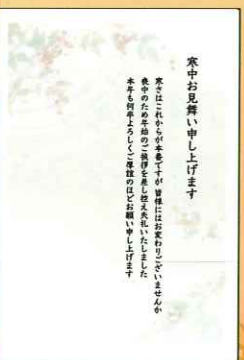 寒中お見舞い申し上げます
寒さはこれからが本番ですが 皆様にはお変わりございませんか
喪中のため年始のご挨拶を差し控え失礼いたしました
本年も何卒よろしくご厚誼のほどお願い申し上げます